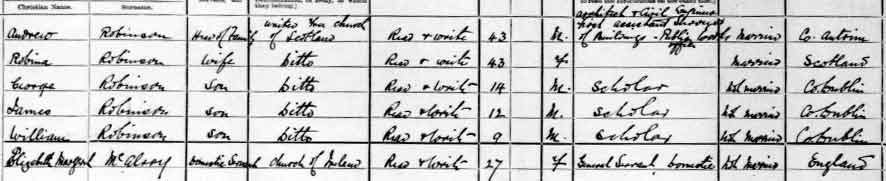 Christian Name. Surname.
Andrew Robinson Head of Family United Free Church of Scotland Read & write 43 M. Architect & Civil Engineer first assistant Surveyor of Buildings - Public Works office Married Co. Antrim
Robina Robinson Wife Ditto Read & write 43 F. Married Scotland
George Robinson Son Ditto Read & Write 14 M. Scholar Not married Co. Dublin
James Robinson Son Ditto Read & Write 12 M. Scholar Not married Co. Dublin
William Robinson Son Ditto Read & Write 9 M. Scholar Not married Co. Dublin
Elizabeth Margaret Domestic Servant Church of Ireland Read & Write 27 F General Servant Domestic Not Married England